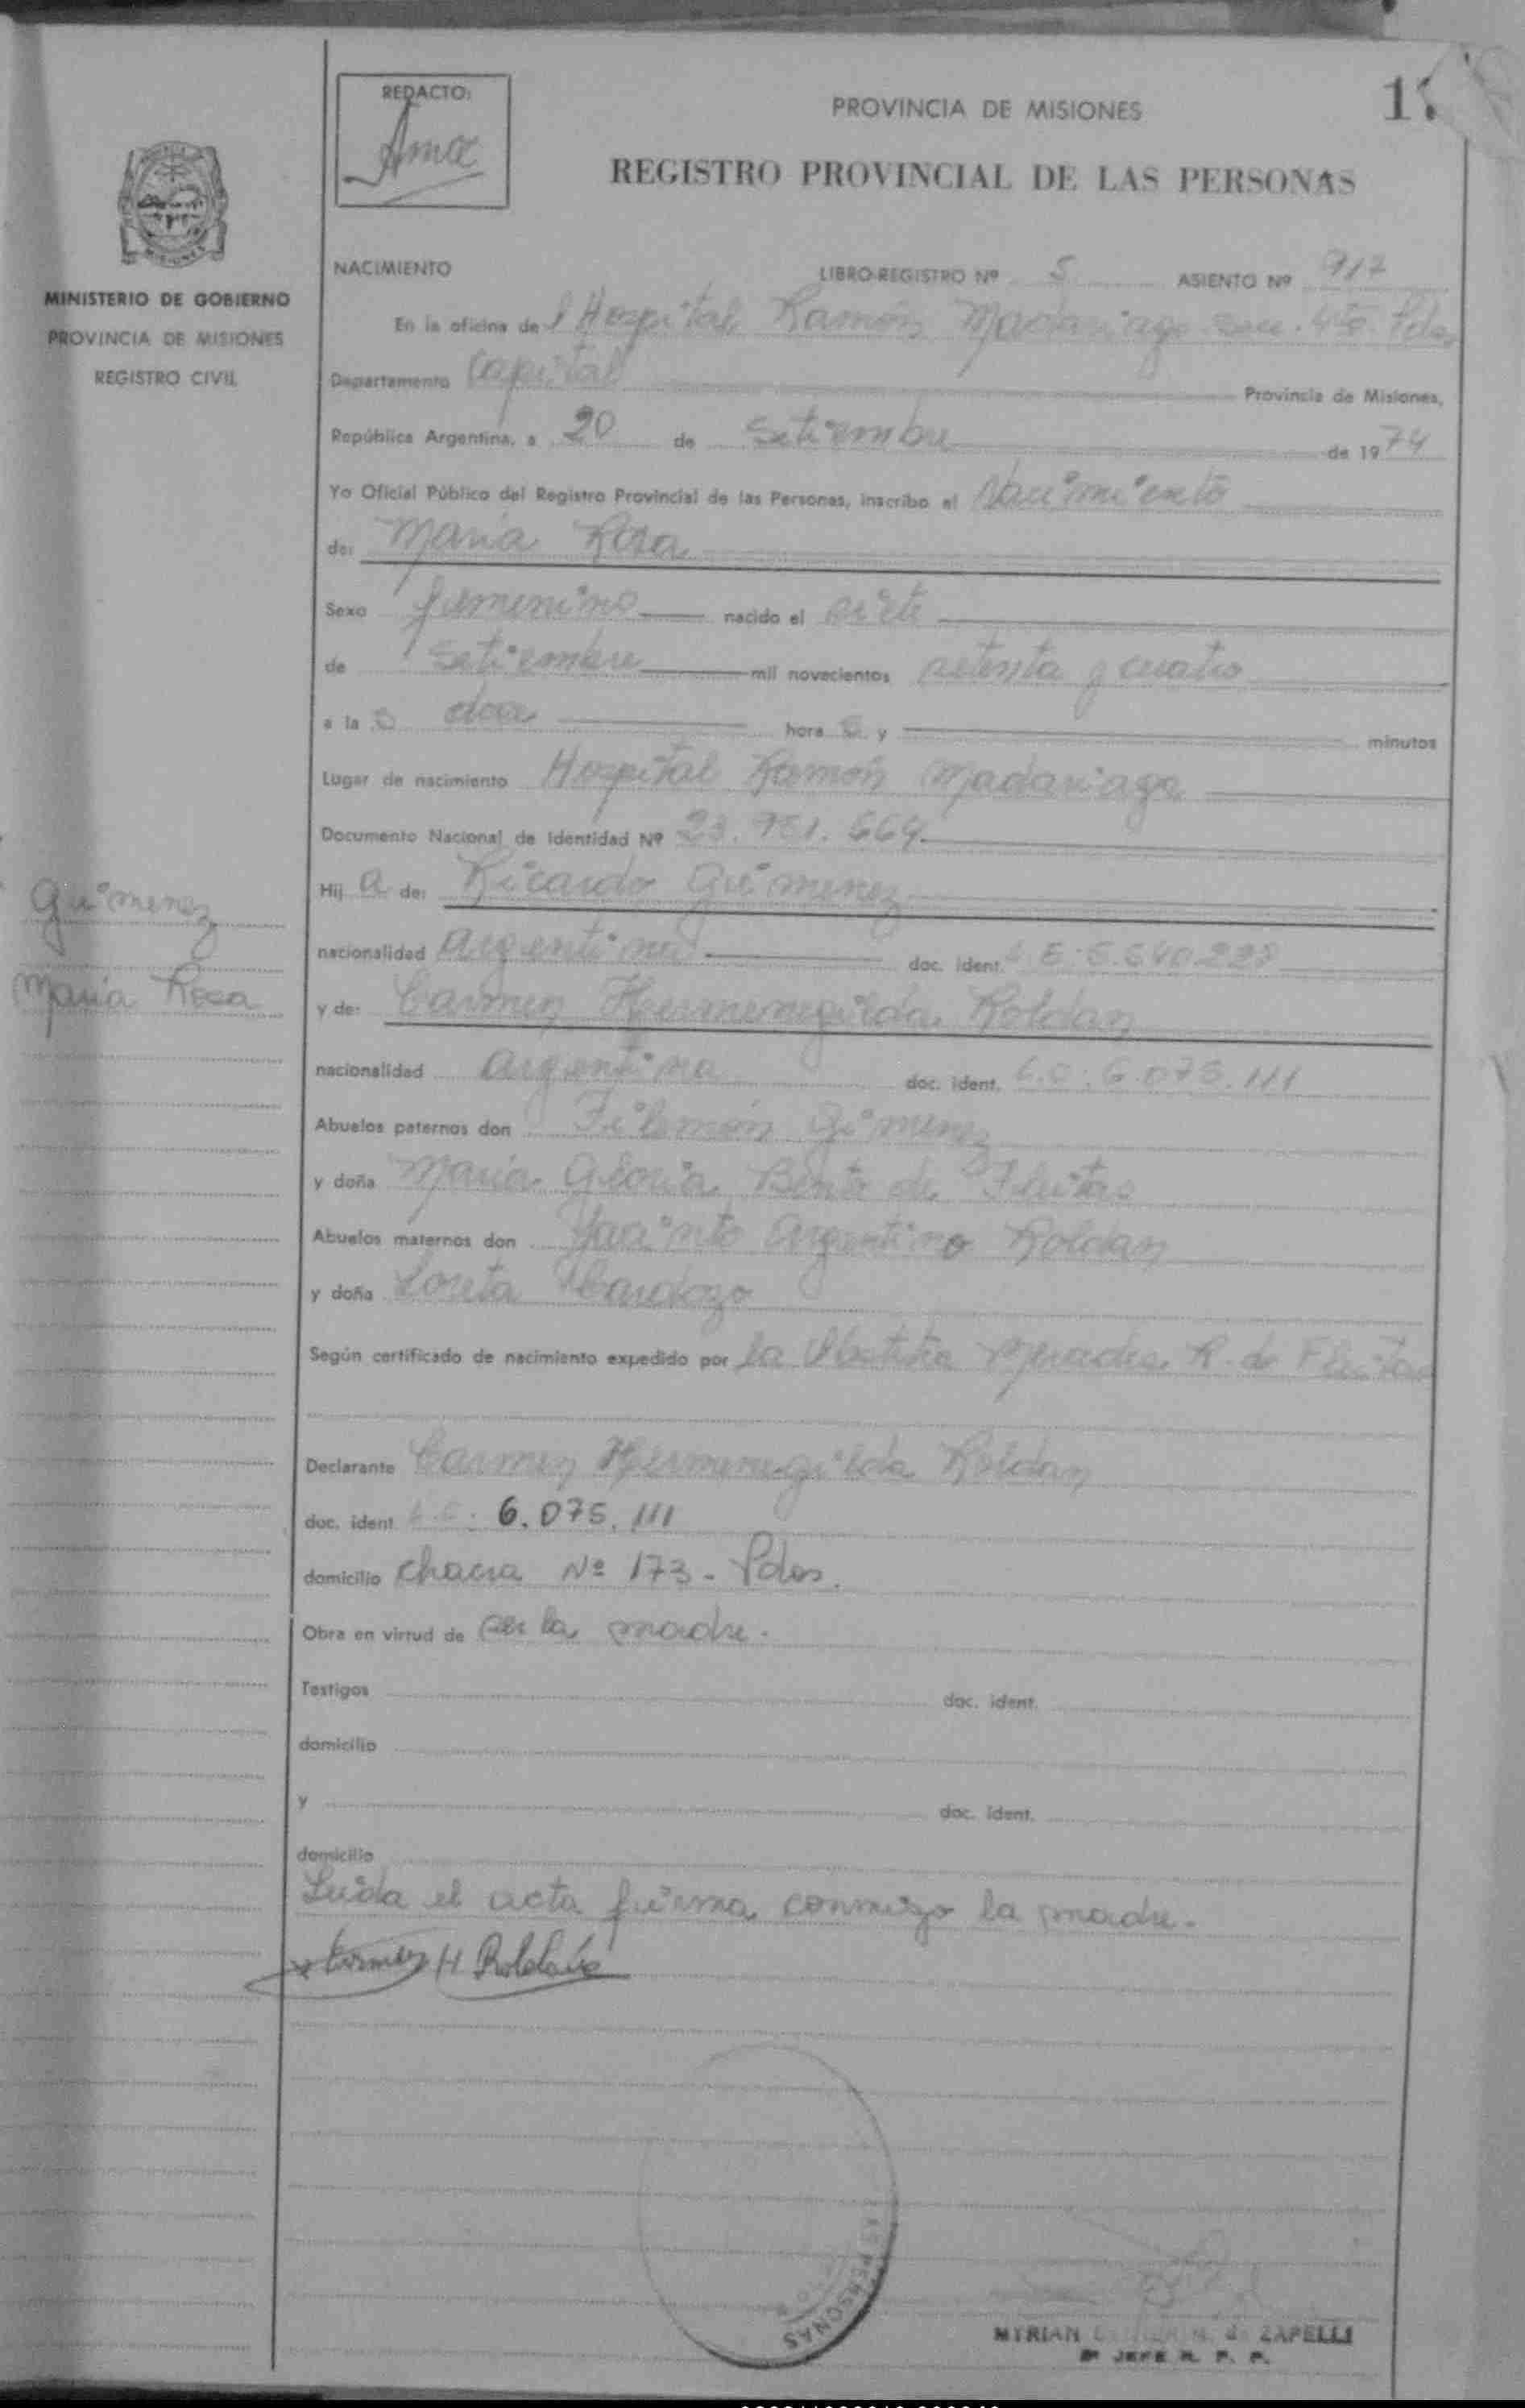 REDACTO:
PROVINCIA DE MISIONES
REGISTRO PROVINCIAL DE LAS PERSONAS
MISIONES
MINISTERIO DE GOBIERNO
PROVINCIA DE MISIONES
REGISTRO CIVIL
NACIMIENTO LIBRO-REGISTRO Nº 5 ASIENTO Nº 917
En la oficina del Hospital Ramón Madariaga Pdas
Departamento Capital Provincia de Misiones,
República Argentina, a 20 de Setiembre de 1974
Yo Oficial Público del Registro Provincial de las Personas, inscribo el Nacimiento
de: María Rosa
Sexo femenino nacido el siete
de Setiembre mil novecientos setenta y cuatro
a las doce horas y minutos
Lugar de nacimiento Hospital Ramón Madariaga
Documento Nacional de Identidad Nº 23.751.664
Hija de: Ricardo Giménez
Giménez
María Rosa
nacionalidad argentina doc. ident. L.E. 5.640.228
y de: Carmen Hermenegilda Roldan
nacionalidad argentina doc. ident. L.C. 6.075.111
Abuelos paternos don Filemón Giménez
y doña María Gloria Benta de Fleitas
Abuelos maternos don Jacinto Argentino Roldan
y doña Loreta Cardozo
Según certificado de nacimiento expedido por la R. de Fleitas
Declarante Carmen Hermenegilda Roldan
doc. ident. L.C. 6.075.111
domicilio Chacra Nº 173 - Pdas.
Obra en virtud de ser la madre.
Testigos doc. ident.
domicilio
y doc. ident.
domicilio
Leida el acta firma conmigo la madre.
Carmen H Roldan
PERSONAS
MYRIAN ZAPELLI
JEFE R. P. P.